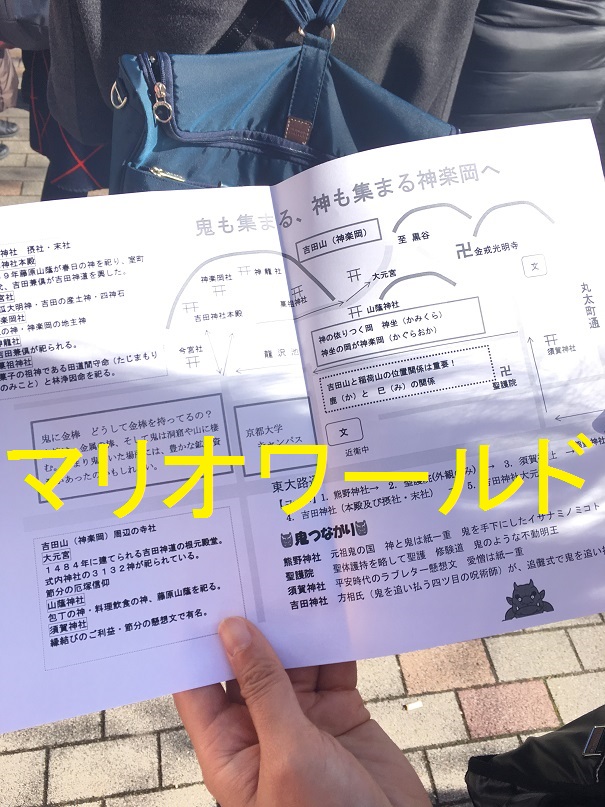 鬼も集まる、神も集まる神楽岡へ
神社 摂社・末社
神社本殿
9年藤原山蔭が春日の神を祀り、室町
、吉田兼倶が吉田神道を興した。
宮社
大明神・吉田の産土神・四神石
楽岡社
の神・神楽岡の地主神
神龍社
吉田兼倶が祀られる。
菓祖神社
菓子の祖神である田道間守命（たじまもり
のみこと）と林浄因命を祀る。
吉田山（神楽岡）
至 黒谷
卍 金戒光明寺
文
丸太町通
神楽岡社
神龍社
菓祖神社
大元宮
吉田神社本殿
山蔭神社
今宮社
龍沢の
神の依りつく岡 神坐（かみくら）
神坐の岡が神楽岡（かぐらおか）
吉田山と稲荷山の位置関係は重要！
鹿（か）と 巳（み）の関係
須賀神社
卍
聖護院
鬼に金棒 どうして金棒を持ってるの？
金属の棒、そして鬼は洞窟や山に棲
京都大学
キャンパス
文
近衛中
マリオワールド
東大路通
1. 熊野神社→ 2.
(外観のみ)→ 3. 須賀神社 →
4. 吉田神社（本殿及び摂社・末社）
5. 吉田神社大元
吉田山（神楽岡）周辺の寺社
大元宮
1484年に建てられる吉田神道の根元殿堂。
式内神社の3132神が祀られている。
節分の厄塚信仰
山蔭神社
包丁の神・料理飲食の神、藤原山蔭を祀る。
須賀神社
縁結びのご利益・節分の懸想文で有名。
鬼つながり
熊野神社 元祖鬼の国 神と鬼は紙一重 鬼を手下にしたイザナミノミコト
聖護院 聖体護持を略して聖護 修験道 鬼のような不動明王
須賀神社 平安時代のラブレター懸想文 愛憎は紙一重
吉田神社 方相氏（鬼を追い払う四ツ目の呪術師）が、追儺式で鬼を追い払